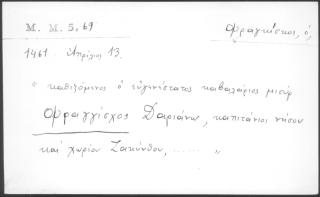 M. M. 5, 69
Φραγκίσκος, ὁ,
1461. Ἀπρίλιος 13.
" καθεζόμενος ὁ εὐγενέστατος καβαλάριος μισὲρ
Φραγγίσχος Δαριάνω, καπιτάνιος νήσου
καὶ χωρίου Ζακύνθου, ...... "